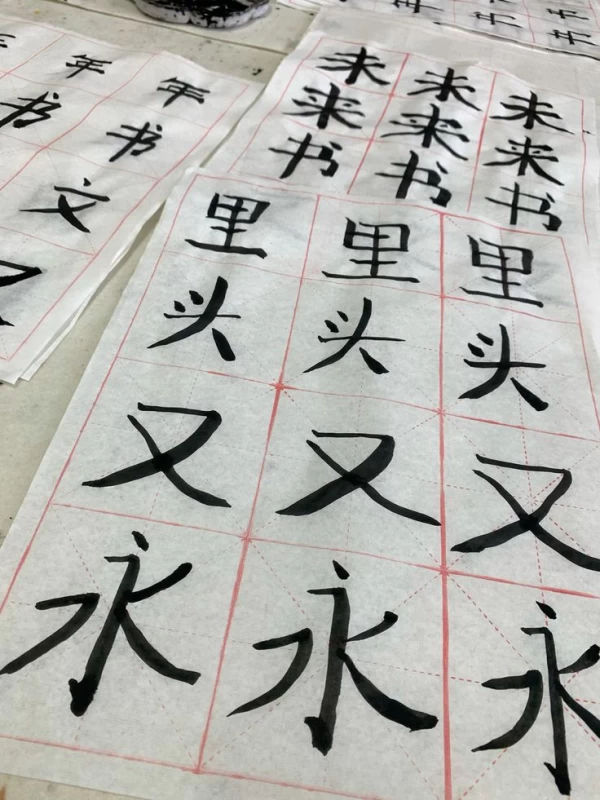 年 年
书 书
文
未 未 未
来 来 来
书 书 书
里 里 里
头 头 头
又 又 又
永 永 永